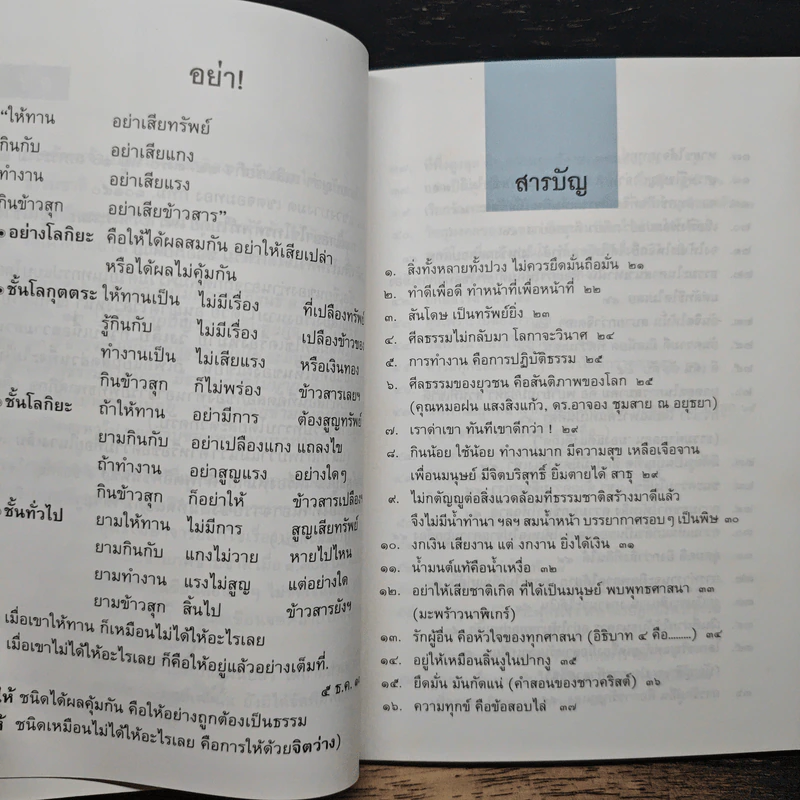 อย่า!
“ให้ทาน อย่าเสียทรัพย์
กินกับ อย่าเสียแกง
ทำงาน อย่าเสียแรง
กินข้าวสุก อย่าเสียข้าวสาร”
• อย่างโลกิยะ คือให้ได้ผลสมกัน อย่าให้เสียเปล่า
หรือได้ผลไม่คุ้มกัน
• ชั้นโลกุตตระ ให้ทานเป็น ไม่มีเรื่อง ที่เปลืองทรัพ
รู้กินกับ ไม่มีเรื่อง เปลืองข้าวของ
ทำงานเป็น ไม่เสียแรง หรือเงินทอง
กินข้าวสุก ก็ไม่พร่อง ข้าวสารเลยฯ
• ชั้นโลกิยะ ถ้าให้ทาน อย่ามีการ ต้องสูญทรัพย์
ยามกินกับ อย่าเปลืองแกง แถลงไข
ถ้าทำงาน อย่าสูญแรง อย่างใดๆ
กินข้าวสุก ก็อย่าให้ ข้าวสารเปลือง
• ชั้นทั่วไป ยามให้ทาน ไม่มีการ สูญเสียทรัพย์
ยามกินกับ แกงไม่วาย หายไปไหน
ยามทำงาน แรงไม่สูญ แต่อย่างใด
ยามข้าวสุก สิ้นไป ข้าวสารยังฯ
เมื่อเขาให้ทาน ก็เหมือนไม่ได้ให้อะไรเลย
เมื่อเขาไม่ได้ให้อะไรเลย ก็คือให้อยู่แล้วอย่างเต็มที่.
๕ ธ.ค.
ให้ ชนิดได้ผลคุ้มกัน คือให้อย่างถูกต้องเป็นธรรม
ชนิดเหมือนไม่ได้ให้อะไรเลย คือการให้ด้วยจิตว่าง)
สารบัญ
๑. สิ่งทั้งหลายทั้งปวง ไม่ควรยึดมั่นถือมั่น ๒๑
๒. ทำดีเพื่อดี ทำหน้าที่เพื่อหน้าที่ ๒๒
๓. สันโดษ เป็นทรัพย์ยิ่ง ๒๓
๔. ศีลธรรมไม่กลับมา โลกาจะวินาศ ๒๔
๕. การทำงาน คือการปฏิบัติธรรม ๒๕
๖. ศีลธรรมของยุวชน คือสันติภาพของโลก ๒๕
(คุณหมอฝน แสงสิงแก้ว, ดร.อาจอง ชุมสาย ณ อยุธยา)
๗. เราด่าเขา ทันทีเขาดีกว่า ! ๒๙
๘. กินน้อย ใช้น้อย ทำงานมาก มีความสุข เหลือเจือจาน
เพื่อนมนุษย์ มีจิตบริสุทธิ์ ยิ้มตายได้ สาธุ ๒๙
๙. ไม่กตัญญูต่อสิ่งแวดล้อมที่ธรรมชาติสร้างมาดีแล้ว
จึงไม่มีน้ำทำนา ฯลฯ สมน้ำหน้า บรรยากาศรอบๆ เป็นพิษ ๓๐
๑๐. งกเงิน เสียงาน แต่ งกงาน ยิ่งได้เงิน ๓๑
๑๑. น้ำมนต์แท้คือน้ำเหงื่อ ๓๒
๑๒. อย่าให้เสียชาติเกิด ที่ได้เป็นมนุษย์ พบพุทธศาสนา ๓๓
(มะพร้าวนาฬิเกร์)
๑๓. รักผู้อื่น คือหัวใจของทุกศาสนา (อิธิบาท ๔ คือ........) ๓๔
๑๔. อยู่ให้เหมือนลิ้นงูในปากงู ๓๕
๑๕. ยึดมั่น มันกัดแน่ (คำสอนของชาวคริสต์) ๓๖
๑๖. ความทุกข์ คือข้อสอบไล่ ๓๗